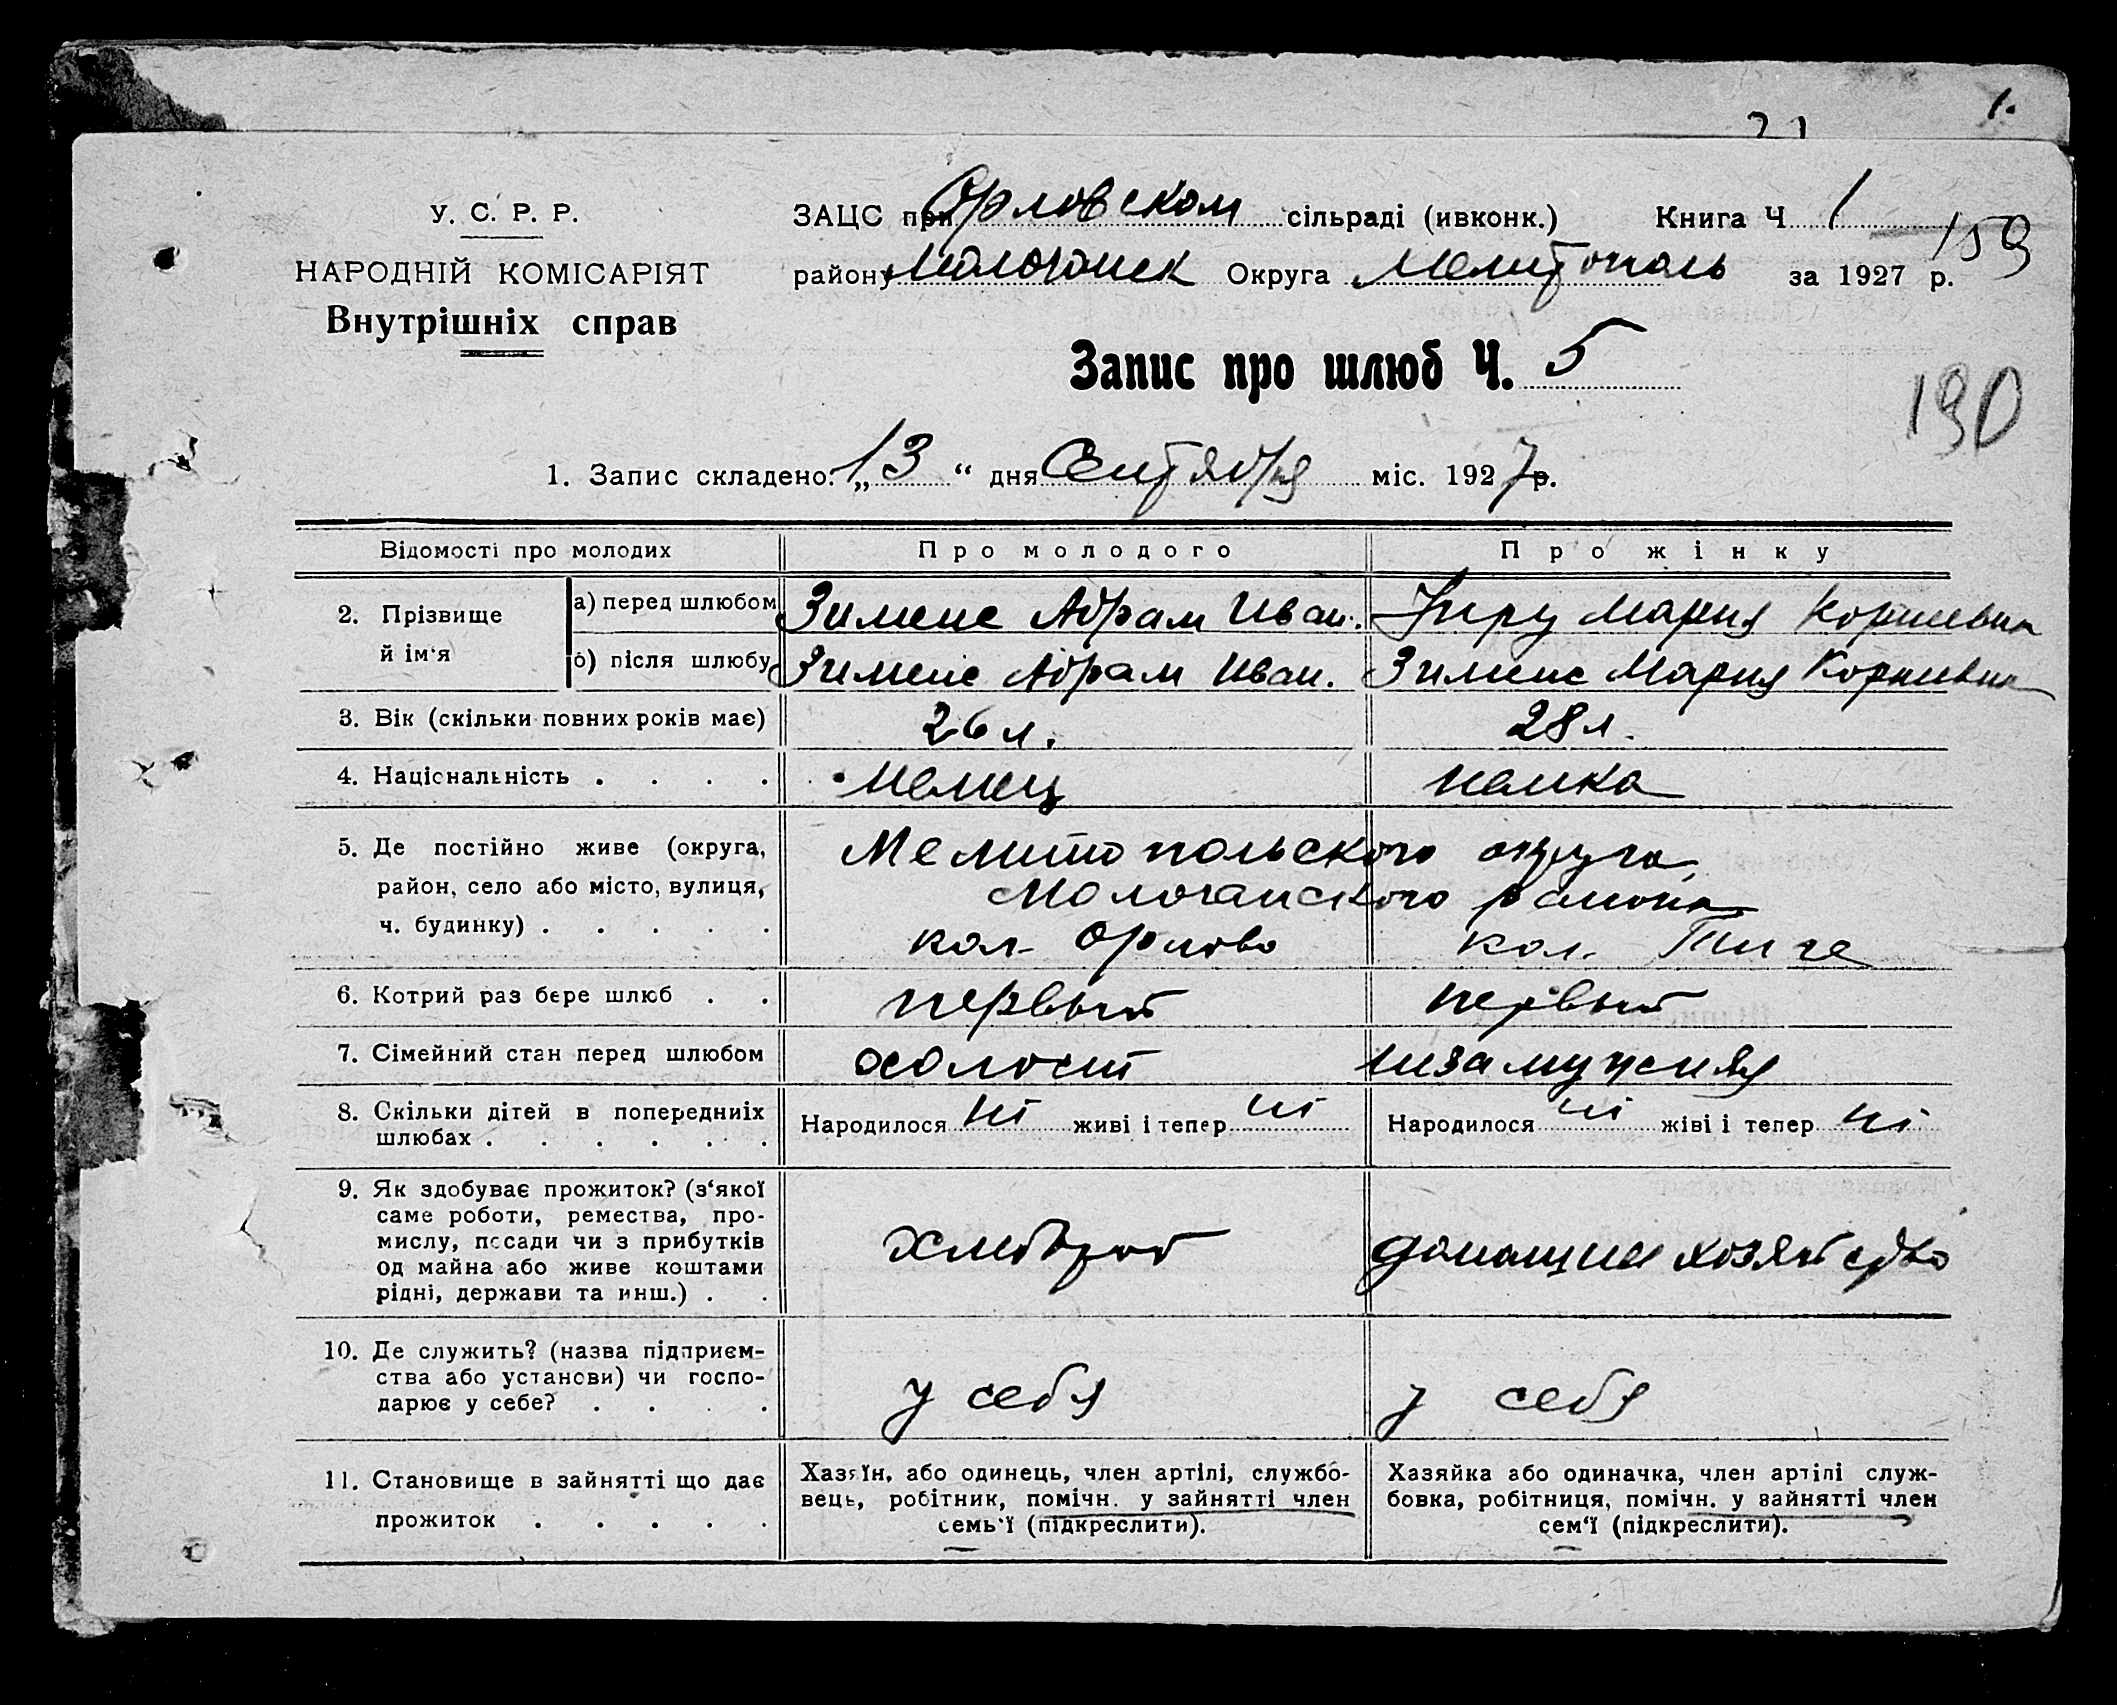 1.
21
У. С. Р. Р.
НАРОДНІЙ КОМІСАРІЯТ
Внутрішніх справ
ЗАЦС при Орловском сільраді (ивконк.) Книга Ч 1
159
району Молочанск Округа Мелитополь за 1927 р.
Запис про шлюб Ч. 5
190
1. Запис складено: „13“ дня Сентября міс. 1927 р.
Відомості про молодих Про молодого Про жінку
2. Прізвище й ім‘я
а) перед шлюбом Зименс Абрам Иван. Мария Корниевна
б) після шлюбу Зименс Абрам Иван. Зименс Мария Корниевна
3. Вік (скільки повних років має) 26 л. 28 л.
4. Національність . . . . немец немка
5. Де постійно живе (округа, Мелитопольского округа,
район, село або місто, вулиця, Молочанского района
ч. будинку) . . . . . кол. Орлово кол. Тиге
6. Котрий раз бере шлюб . . первый первый
7. Сімейний стан перед шлюбом холост незамужняя
8. Скільки дітей в попередниіх Народилося ні живі і тепер ні Народилося ні жіві і тепер ні
шлюбах . . . . . .
9. Як здобуває прожиток? (з‘якої
саме роботи, ремества, про-
мислу, посади чи з прибутків хлебороб домашнее хозяйство
од майна або живе коштами
рідні, держави та инш.) . .
10. Де служить? (назва підприєм-
ства або установи) чи госпо- у себя у себя
дарює у себе? . . . .
11. Становище в зайнятті що дає
прожиток . . . . .
Хазяїн, або одинець, член артілі, службо-
вець, робітник, помічн. у зайнятті член
семь‘ї (підкреслити).
Хазяйка або одиначка, член артілі служ-
бовка, робітниця, помічн. у зайнятті член
сем‘ї (підкреслити).